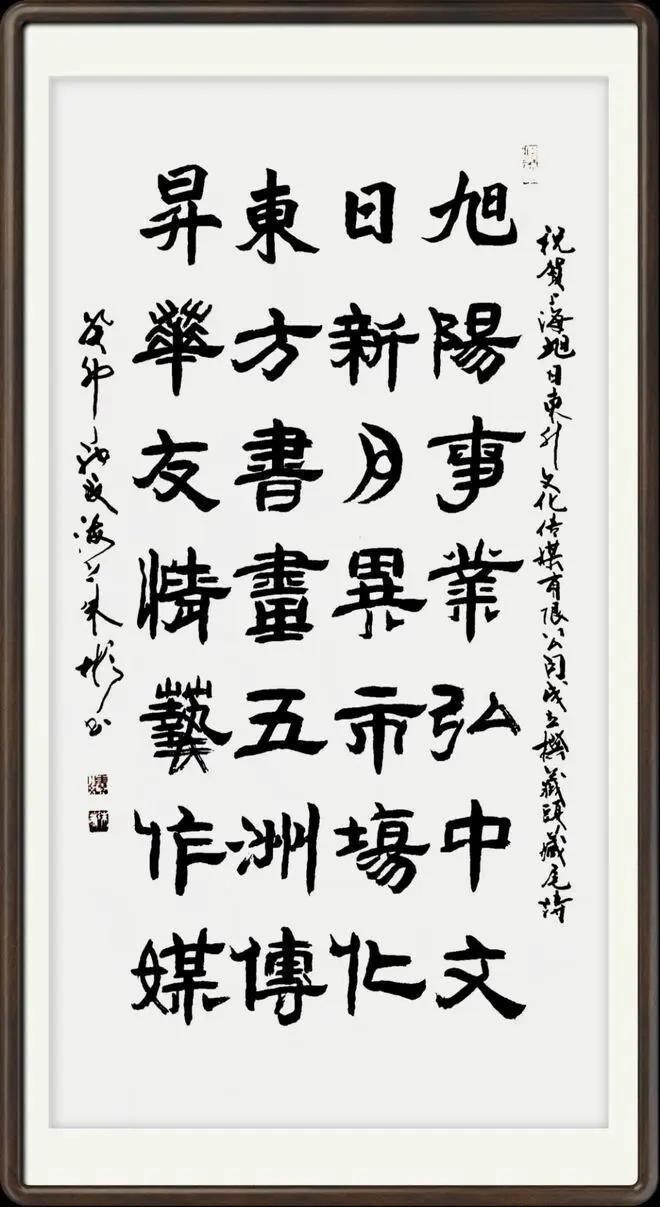 祝賀上海旭日東升文化传媒有限公司成立撰藏頭藏尾诗
旭陽事業弘中文
日新月異市場化
東方書畫五洲傳
昇華友情藝作媒
癸卯